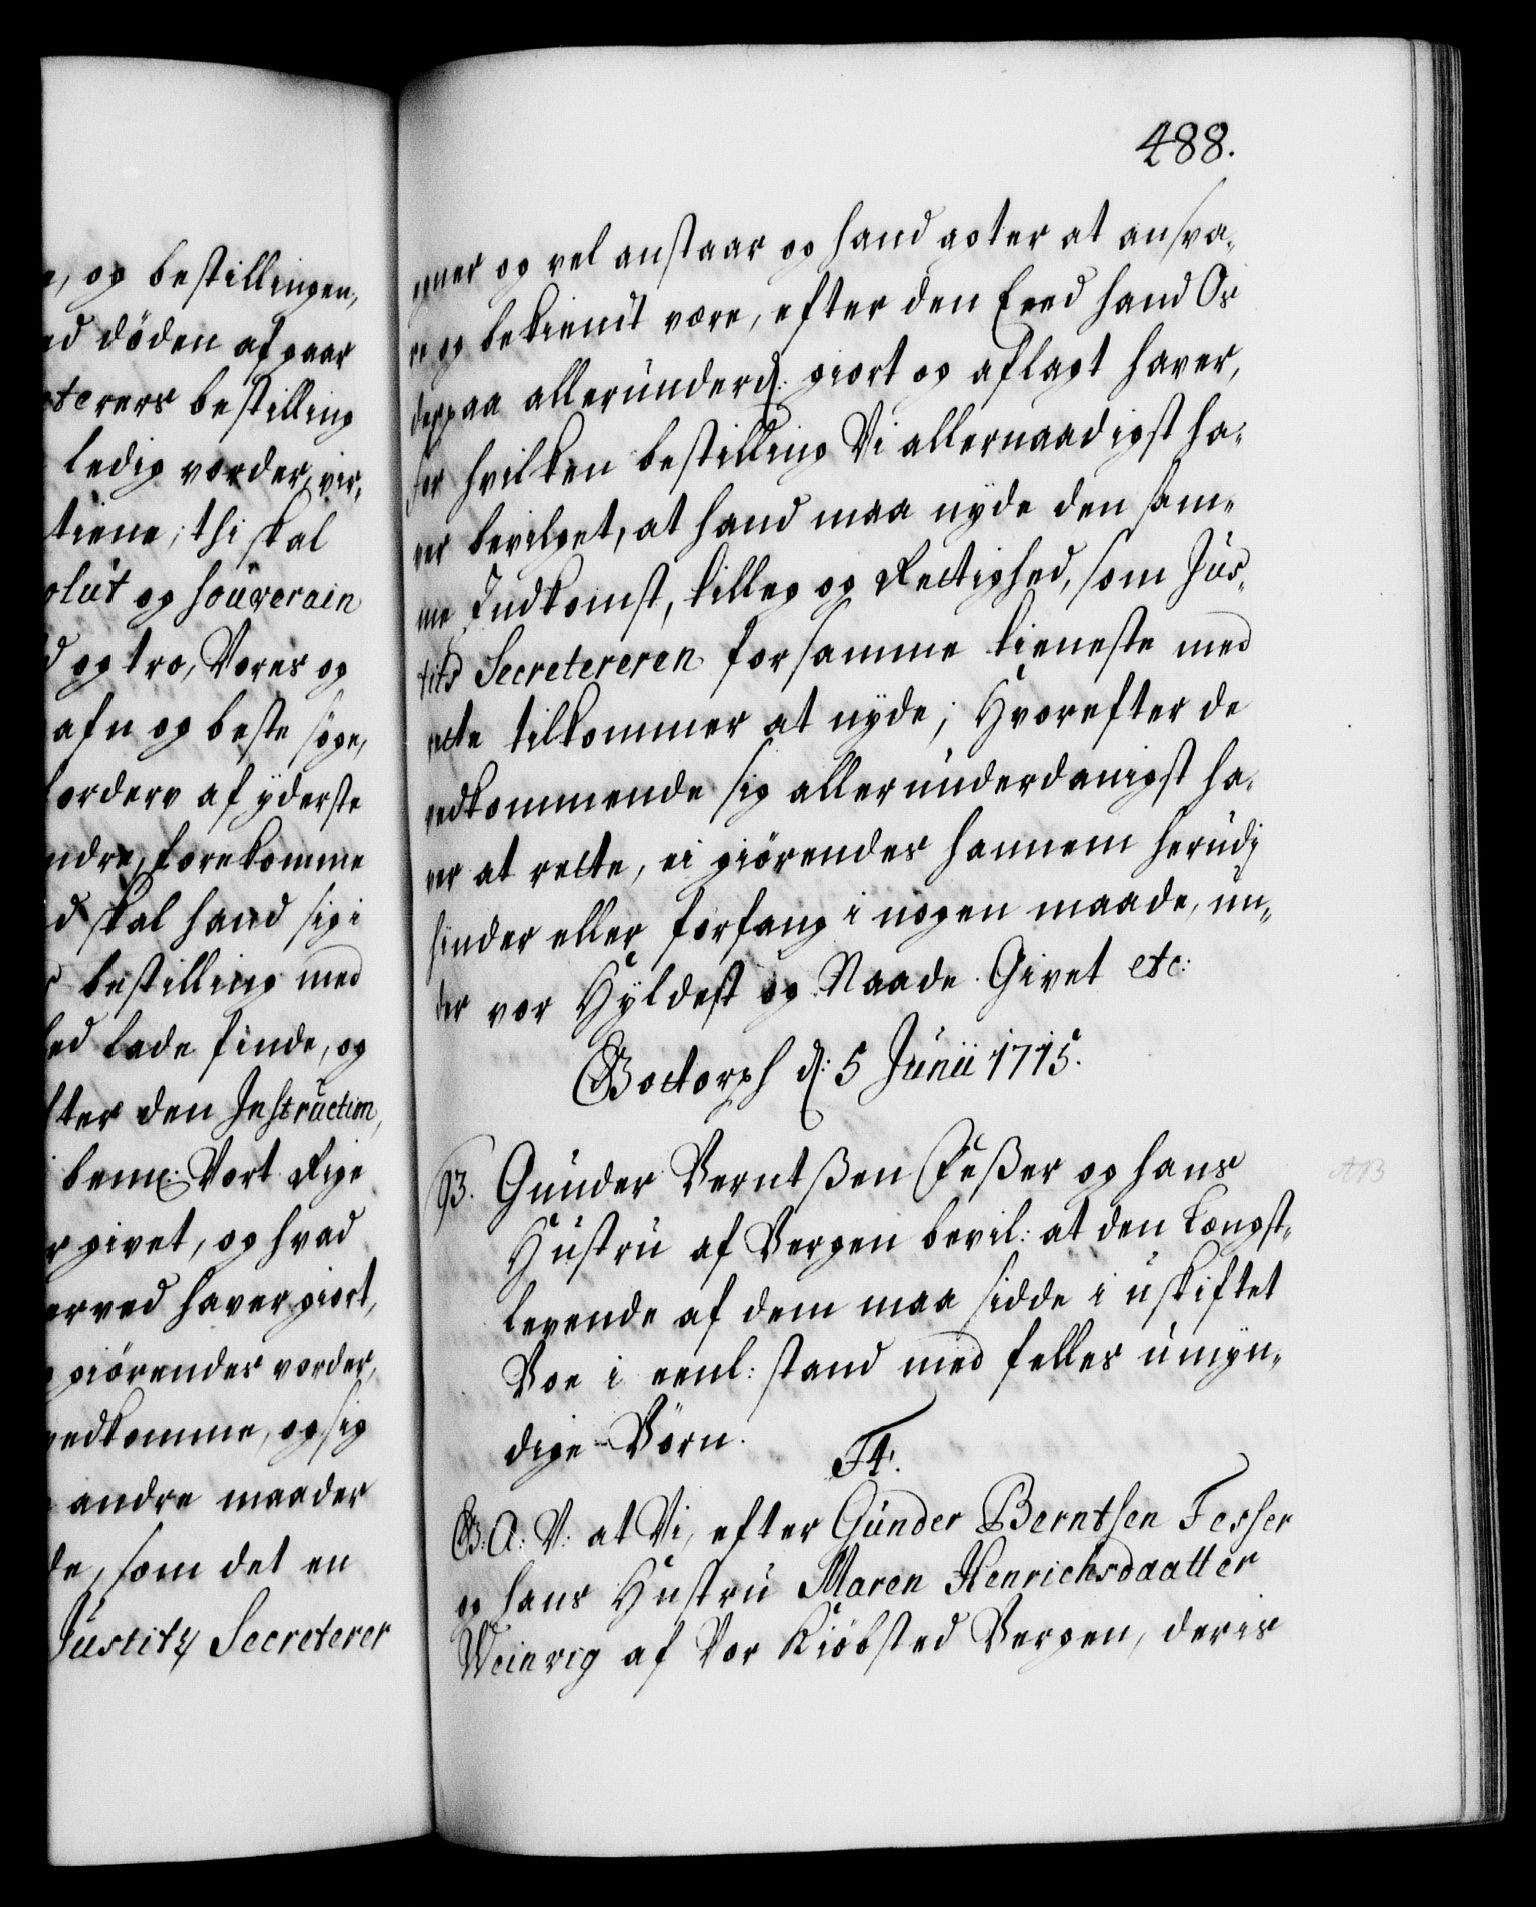 488.
e, og bestillingen,
ed döden afgaar
eterers bestilling
ledig vorder, vir,
tiene; thi skal
olut og souverain
d og tro, Vores og
afn og beste søge,
orderv af yderste
ndre, forekomme
d skal hand sig i
s bestilling med
ed lade finde, og
fter den Instruction,
bem: Vort Rige
r givet, og hvad
erved haver giort,
giörendes vorder,
vedkomme, og sig
andre maader
de, som det en
Justitz Secreterer
egner og vel anstaar og hand agter at ansva,
re og bekiendt være, efter den Eeed hand Os
derpaa allerunderd: giort og aflagt haver,
for hvilken bestilling Vi allernaadigst ha,
ver bevilget, at hand maa nyde den sam,
me Indkomst, tilleg og Rectighed, som Jus,
tits Secretereren for samme tieneste med
rette tilkommer at nyde; Hvorefter de
vedkommende sig allerunderdanigst ha,
ver at rette, ei giörendes hannem herudj
hinder eller forfang i nogen maade, un,
der vor Hyldest og Naade. Givet etc:
Gottorph d: 5 Junii 1715.
93. Gunder Berntßen Feßer og hans
Hustru af Bergen bevil: at den Længst,
levende af dem maa sidde i uskiftet
Boe i eenl: stand med felles umyn,
dige Börn.
F4.
G: A: V: at Vi, efter Gunder Berntsen Fesser
og hans Hustru Maren Henrichsdaatter
Weinvig af Vor Kiöbsted Bergen, deris